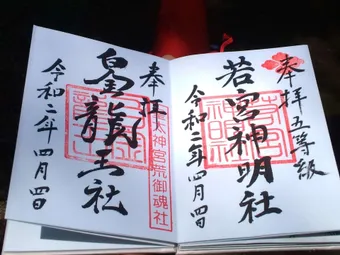 奉拝五等級
若宮神明社
令和二年四月四日
奉拝
太神宮荒御魂社
龍王社
令和二年四月四日